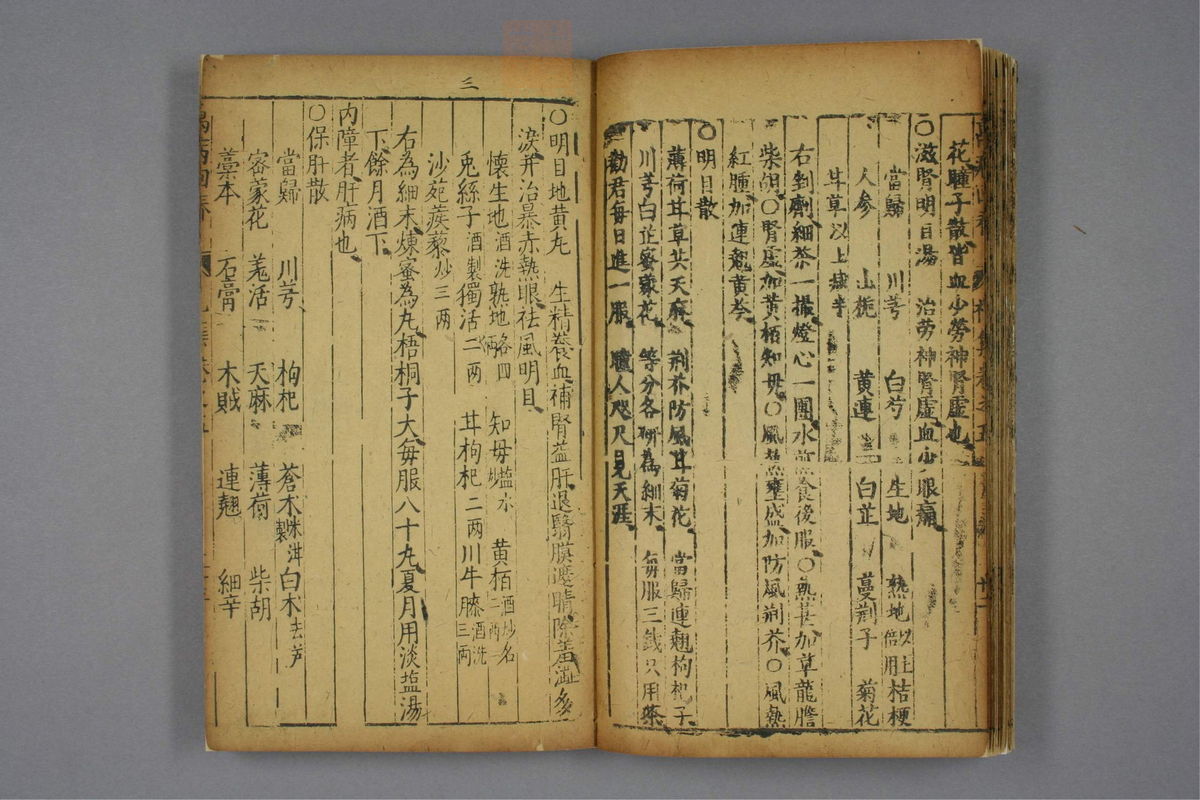 花瞳子散皆血少勞神腎虛也
○滋腎明目湯　治勞神腎虛血少眼痛
當歸　川芎　白芍　生地　熟地以上倍用　桔梗
人參　山梔　黃連　白芷　蔓荊子　菊花
甘草以上減半
右剉劑細茶一撮燈心一團水煎食後服○熱甚加草龍膽
柴胡○腎虛加黃栢知母○風熱壅盛加防風荊芥○風熱
紅腫加連翹黃芩
○明目散
薄荷甘草共天麻　荊芥防風甘菊花　當歸連翹枸杞子
川芎白芷蜜蒙花　等分各研為細末　每服三錢只用茶
勸君每日進一服　瞻人咫尺見天涯
三
○明目地黃丸　生精養血補腎益肝退翳膜遮睛除羞澁多
淚并治暴赤熱眼祛風明目
懷生地酒洗熟地各四兩　知母塩水炒　黃栢酒炒各二兩
兎絲子酒製獨活二兩　甘枸杞二兩川牛膝酒洗三兩
沙苑蒺藜炒三兩
右為細末煉蜜為丸梧桐子大每服八十丸夏月用淡塩湯
下餘月酒下
內障者肝病也
○保肝散
當歸　川芎　枸杞　蒼术米泔製　白术去芦
密蒙花　羗活　天麻　薄荷　柴胡
藁本　石膏　木賊　連翹　細辛